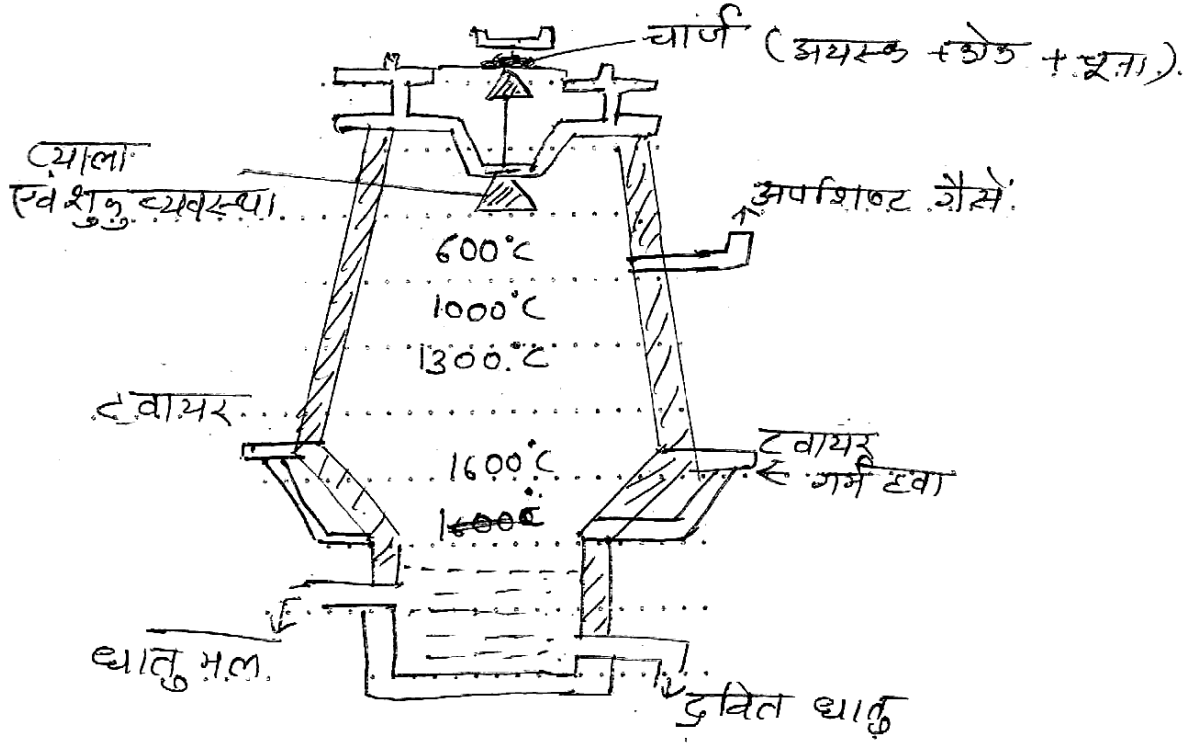 चार्ज (अयस्क + कोक + चूना).
प्याला
एवं शुंकु व्यवस्था
अपशिष्ट गैसें
600°C
1000°C
1300°C
टवायर
टवायर
← गर्म हवा
1600°C
धातु मल
द्रवित धातु